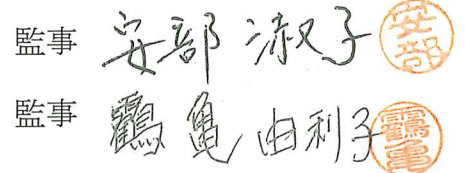 監事 安部 淑子 安部
監事 鶴亀 由利子 鶴亀